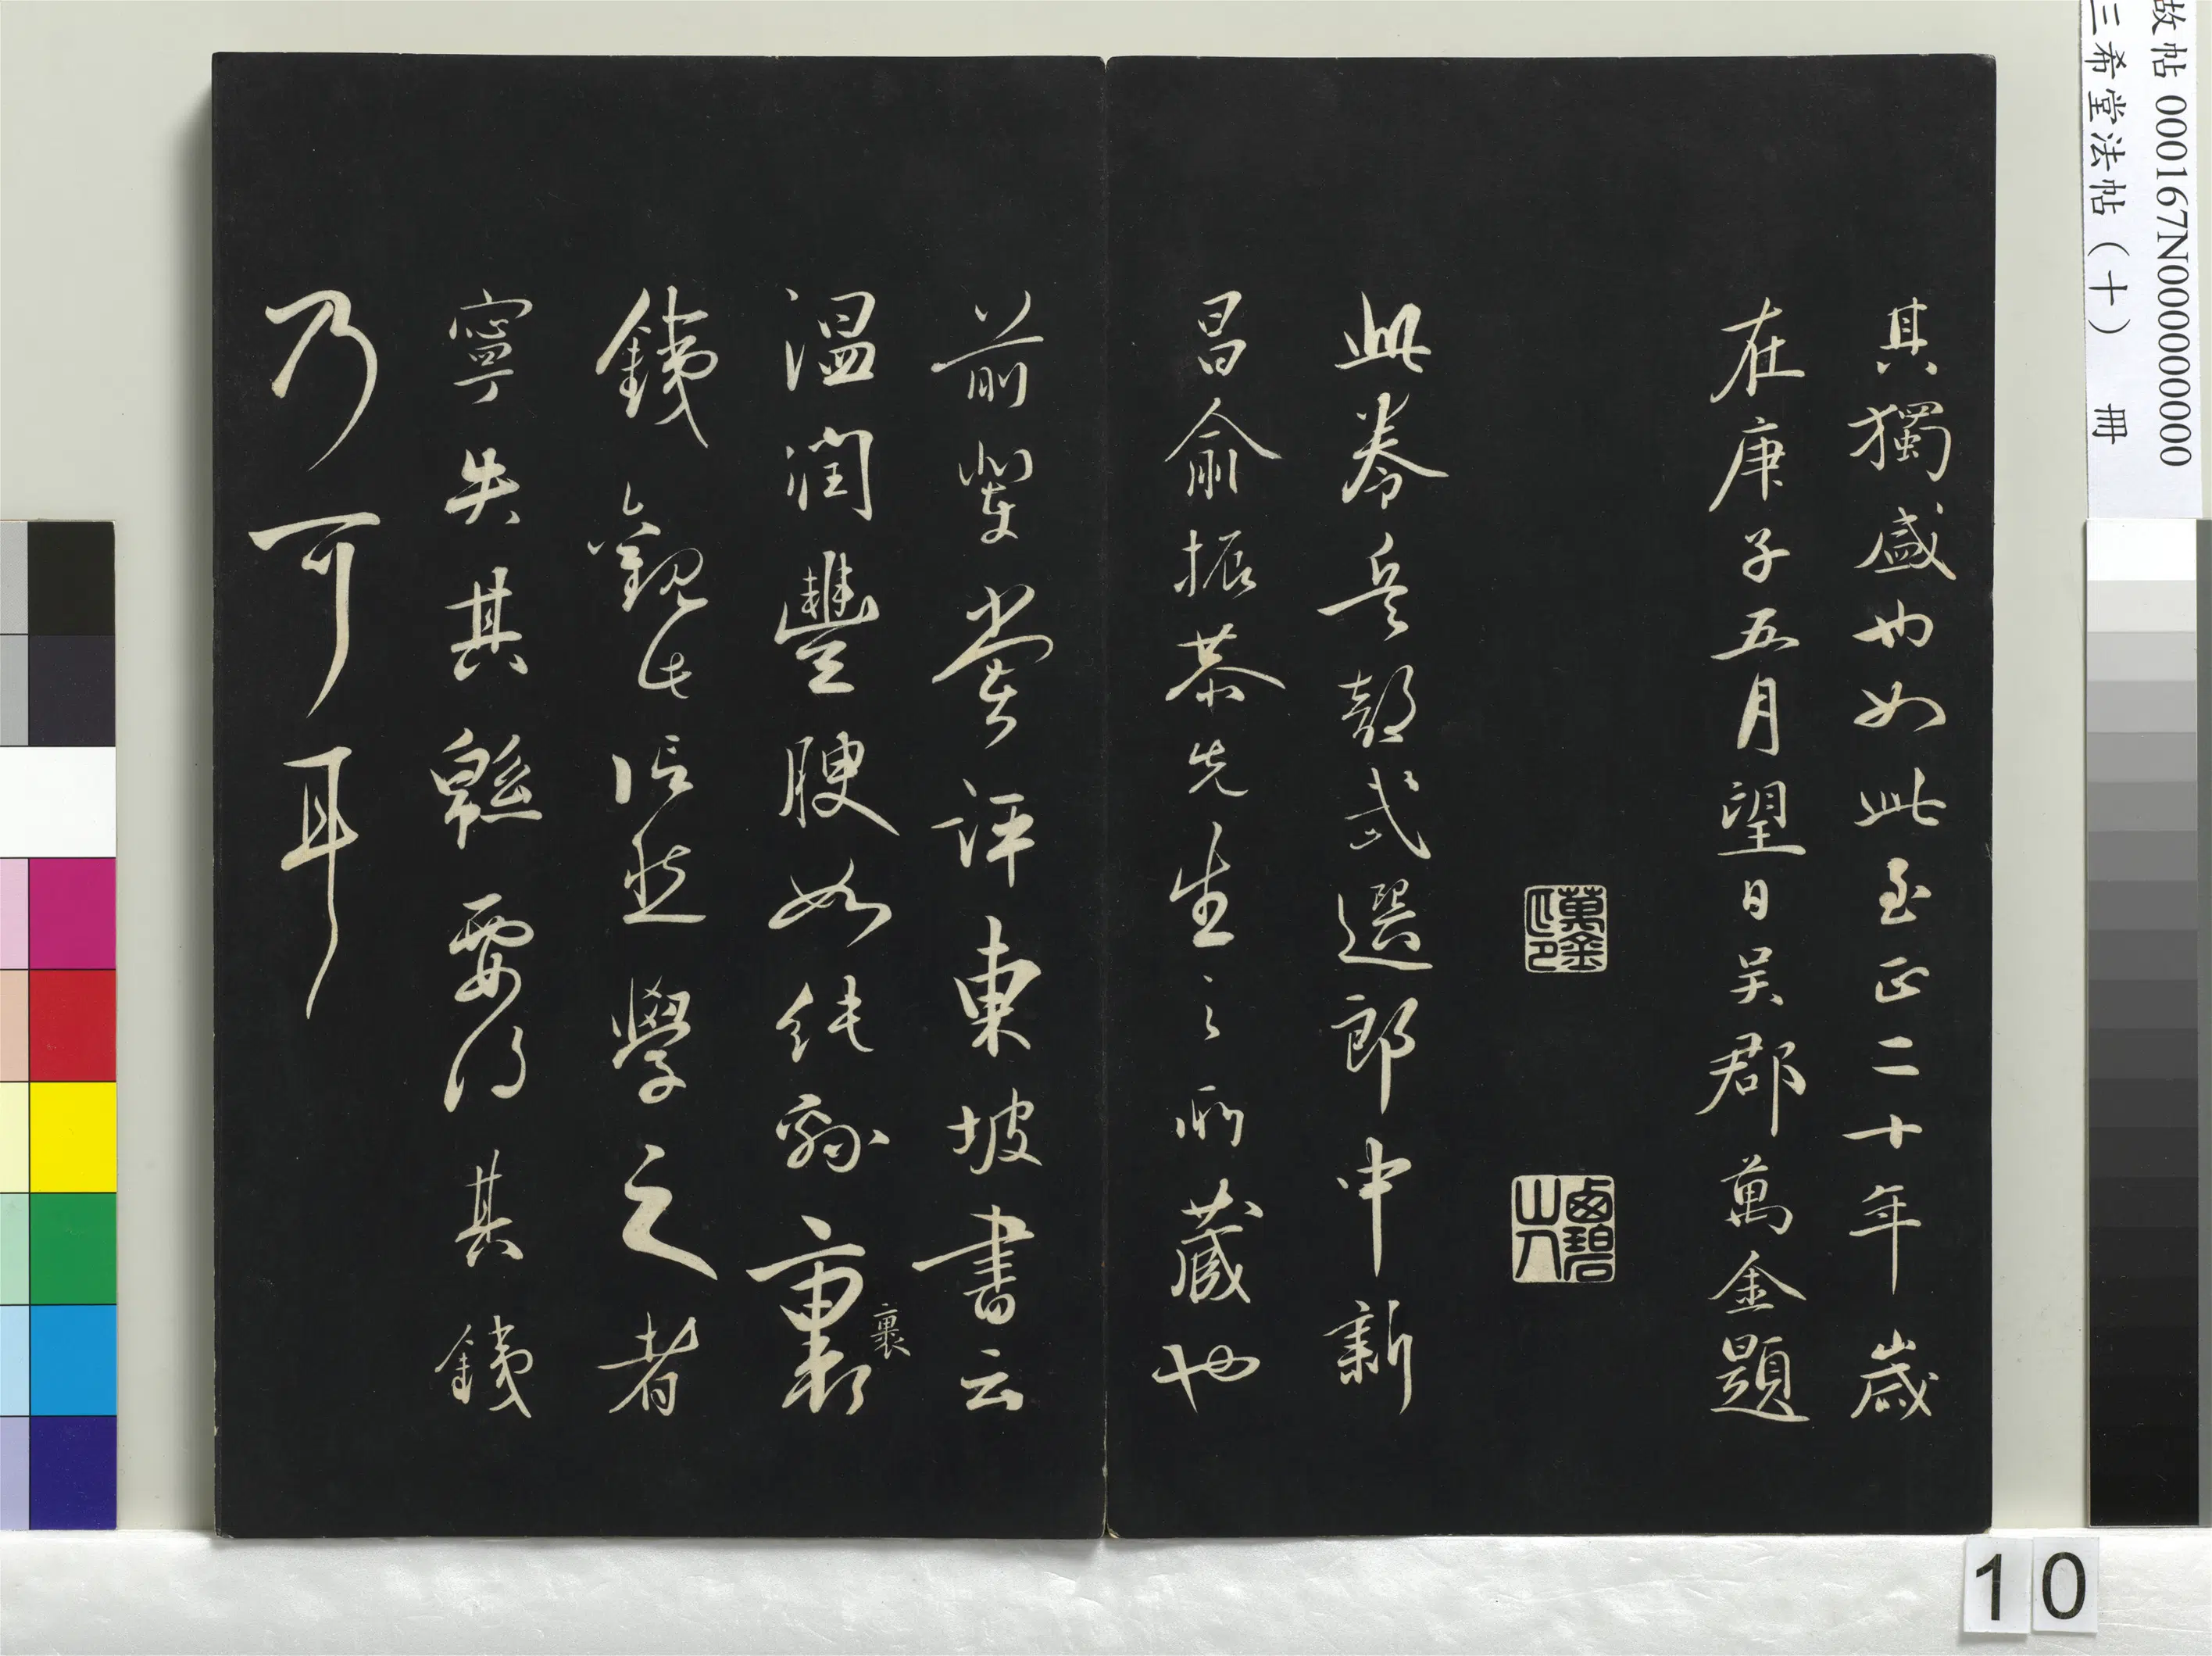 其獨盛也如此至正二十年歲
在庚子五月望日吳郡萬金題
萬金
此卷兵部武選郎中新
昌俞振恭先生之所藏也
前輩嘗評東坡書云
溫潤豐腴如純綿裹
裹
鐵觀此信然學之者
寧失其綿要得其鐵
乃可耳
故帖 000167N000000000
三希堂法帖（十） 冊
10